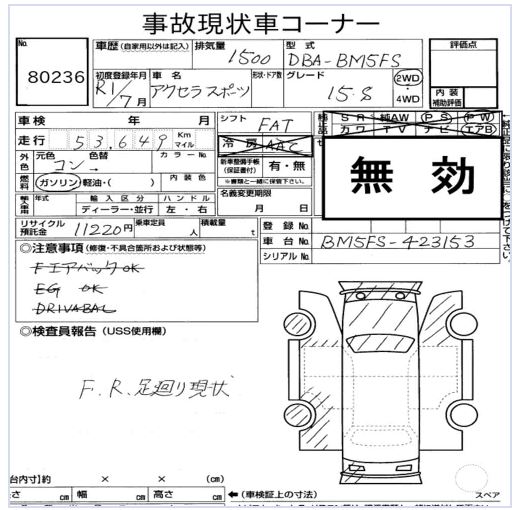 事故現状車コーナー
No. 80236
車歴 (自家用以外は記入) 排気量 1500 型式 DBA-BM5FS 評価点
初度登録年月 R1/7月 車名 アクセラスポーツ 形状・ドア数 グレード 15.S 2WD・4WD 内装 補助評価
車検 年 月 シフト FAT 純正品 SR 純AW PS PW
カワ TV ナビ エアB
走行 53,649 Km マイル 冷房 AAC
外色 元色 色替 コン カラーNo. 新車整備手帳(保証書付) 有・無 無効
※書類と一緒に保管下さい。
燃料 ガソリン・軽油・( ) 内装色 名義変更期限
輸入車用 年式 輸入区分 ハンドル 月 日
ディーラー・並行 左・右
リサイクル預託金 11220円 乗車定員 人 積載量 t 登録No.
車台No. BM5FS-423153
シリアルNo.
◎注意事項 (修復・不具合箇所および状態等)
FエアバックOK
EG OK
DRIVABAL
◎検査員報告 (USS使用欄)
F.R.足廻り現状
台内寸)約 × × (cm)
さ cm 幅 cm 高さ cm ← (車検証上の寸法) スペア